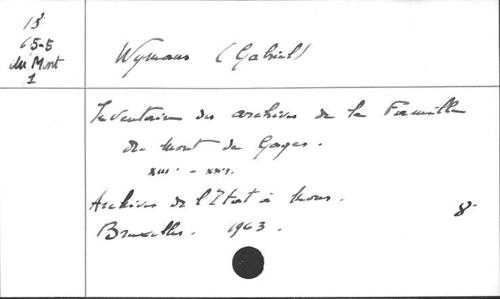 13
65-5
du Mont
1
Wymans (Gabriel)
Inventaire des archives de la Famille
du Mont de Gages.
XIIIe - XXe s.
Archives de l'Etat à Mons.
Bruxelles. 1963. 8°